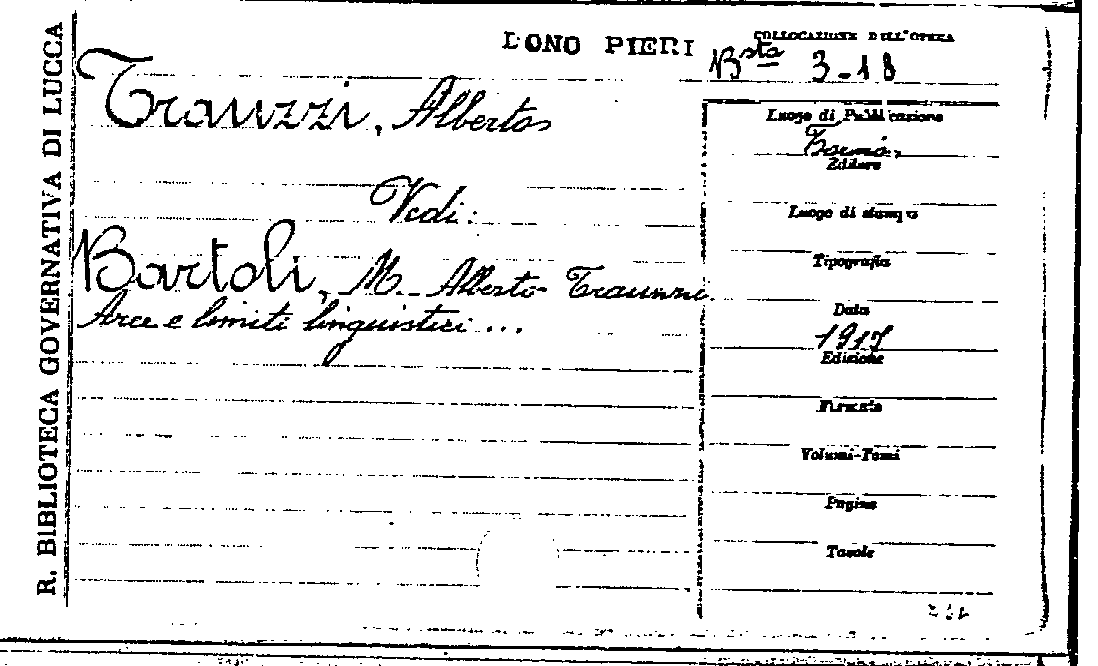 R. BIBLIOTECA GOVERNATIVA DI LUCCA
DONO PIERI
COLLOCAZIONE DELL'OPERA
Bsta 3-18
Trauzzi, Alberto
Vedi:
Bartoli, M. Alberto Trauzzi.
Aree e limiti linguistici ...
Luogo di Pubblicazione
Torino
Editore
Luogo di stampa
Tipografia
Data
Edizione
Formato
Volumi-Tomi
Pagine
Tavole